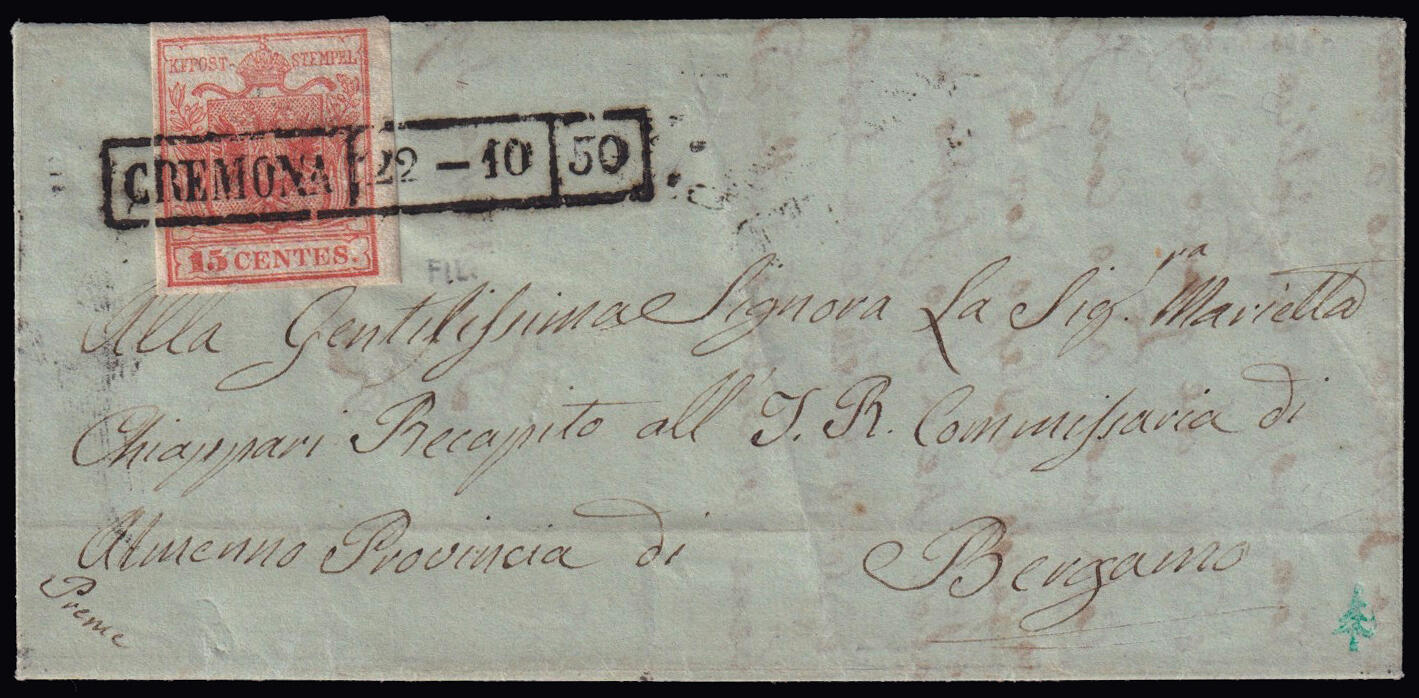 KKPOST-STEMPEL
15 CENTES.
CREMONA 22 - 10 50
FIL.
Alla Gentilissima Signora La Sig.ra Marietta
Chiappari Recapito all' I. R. Commissaria di
Almenno Provincia di Bergamo
Preme